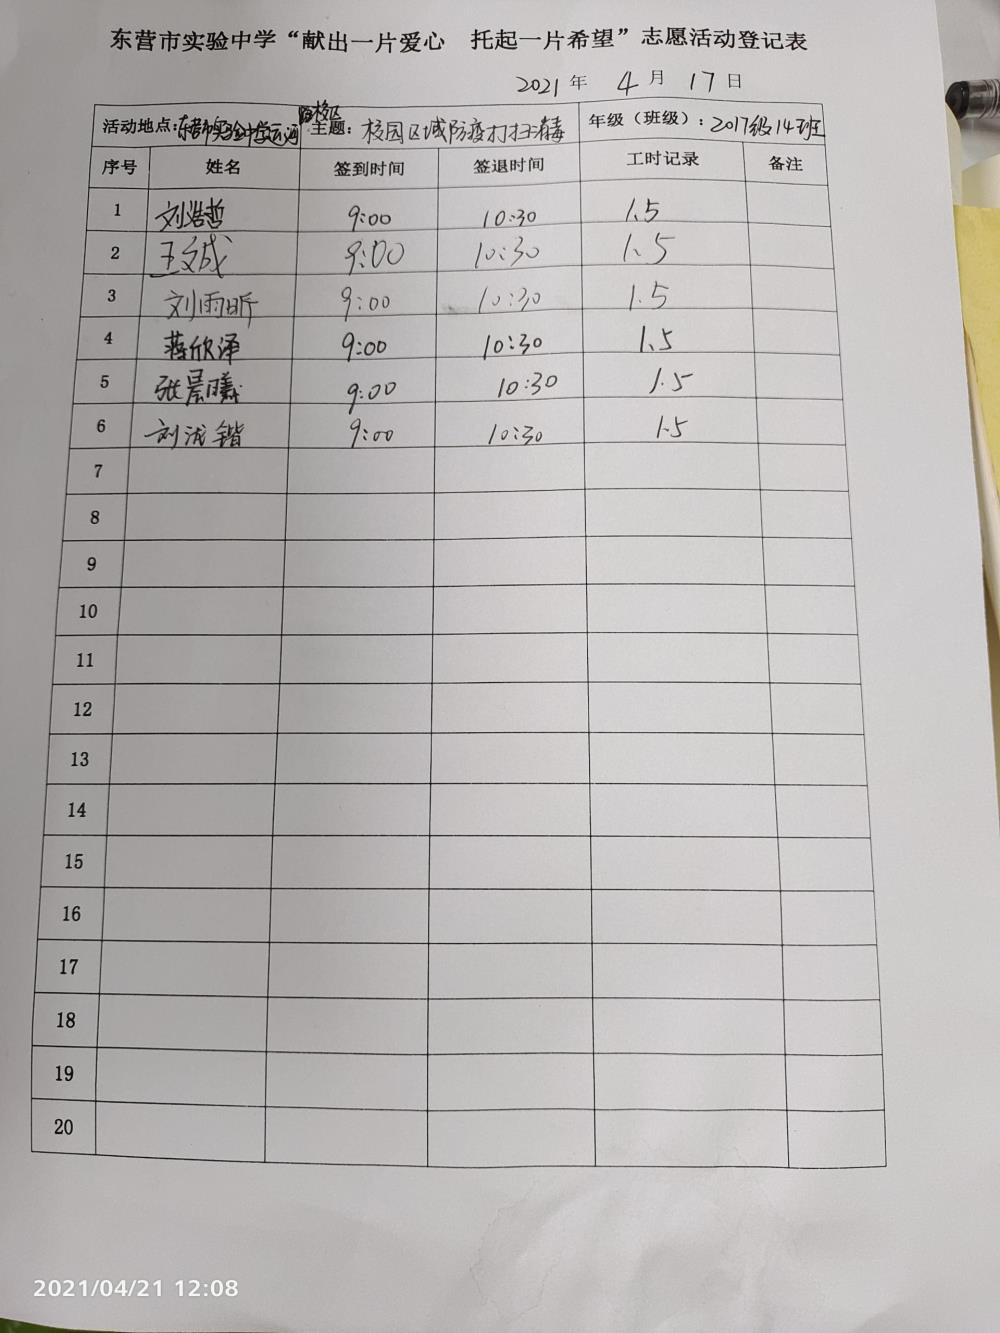 东营市实验中学“献出一片爱心 托起一片希望”志愿活动登记表
2021年 4月 17日
活动地点:东营市实验中学运河路校区 主题：校园区域防疫打扫消毒 年级（班级）：2017级14班
序号 姓名 签到时间 签退时间 工时记录 备注
1 刘浩哲 9:00 10:30 1.5
2 王文诚 9:00 10:30 1.5
3 刘雨昕 9:00 10:30 1.5
4 蒋欣泽 9:00 10:30 1.5
5 张晨曦 9:00 10:30 1.5
6 刘泷锴 9:00 10:30 1.5
7
8
9
10
11
12
13
14
15
16
17
18
19
20
2021/04/21 12:08